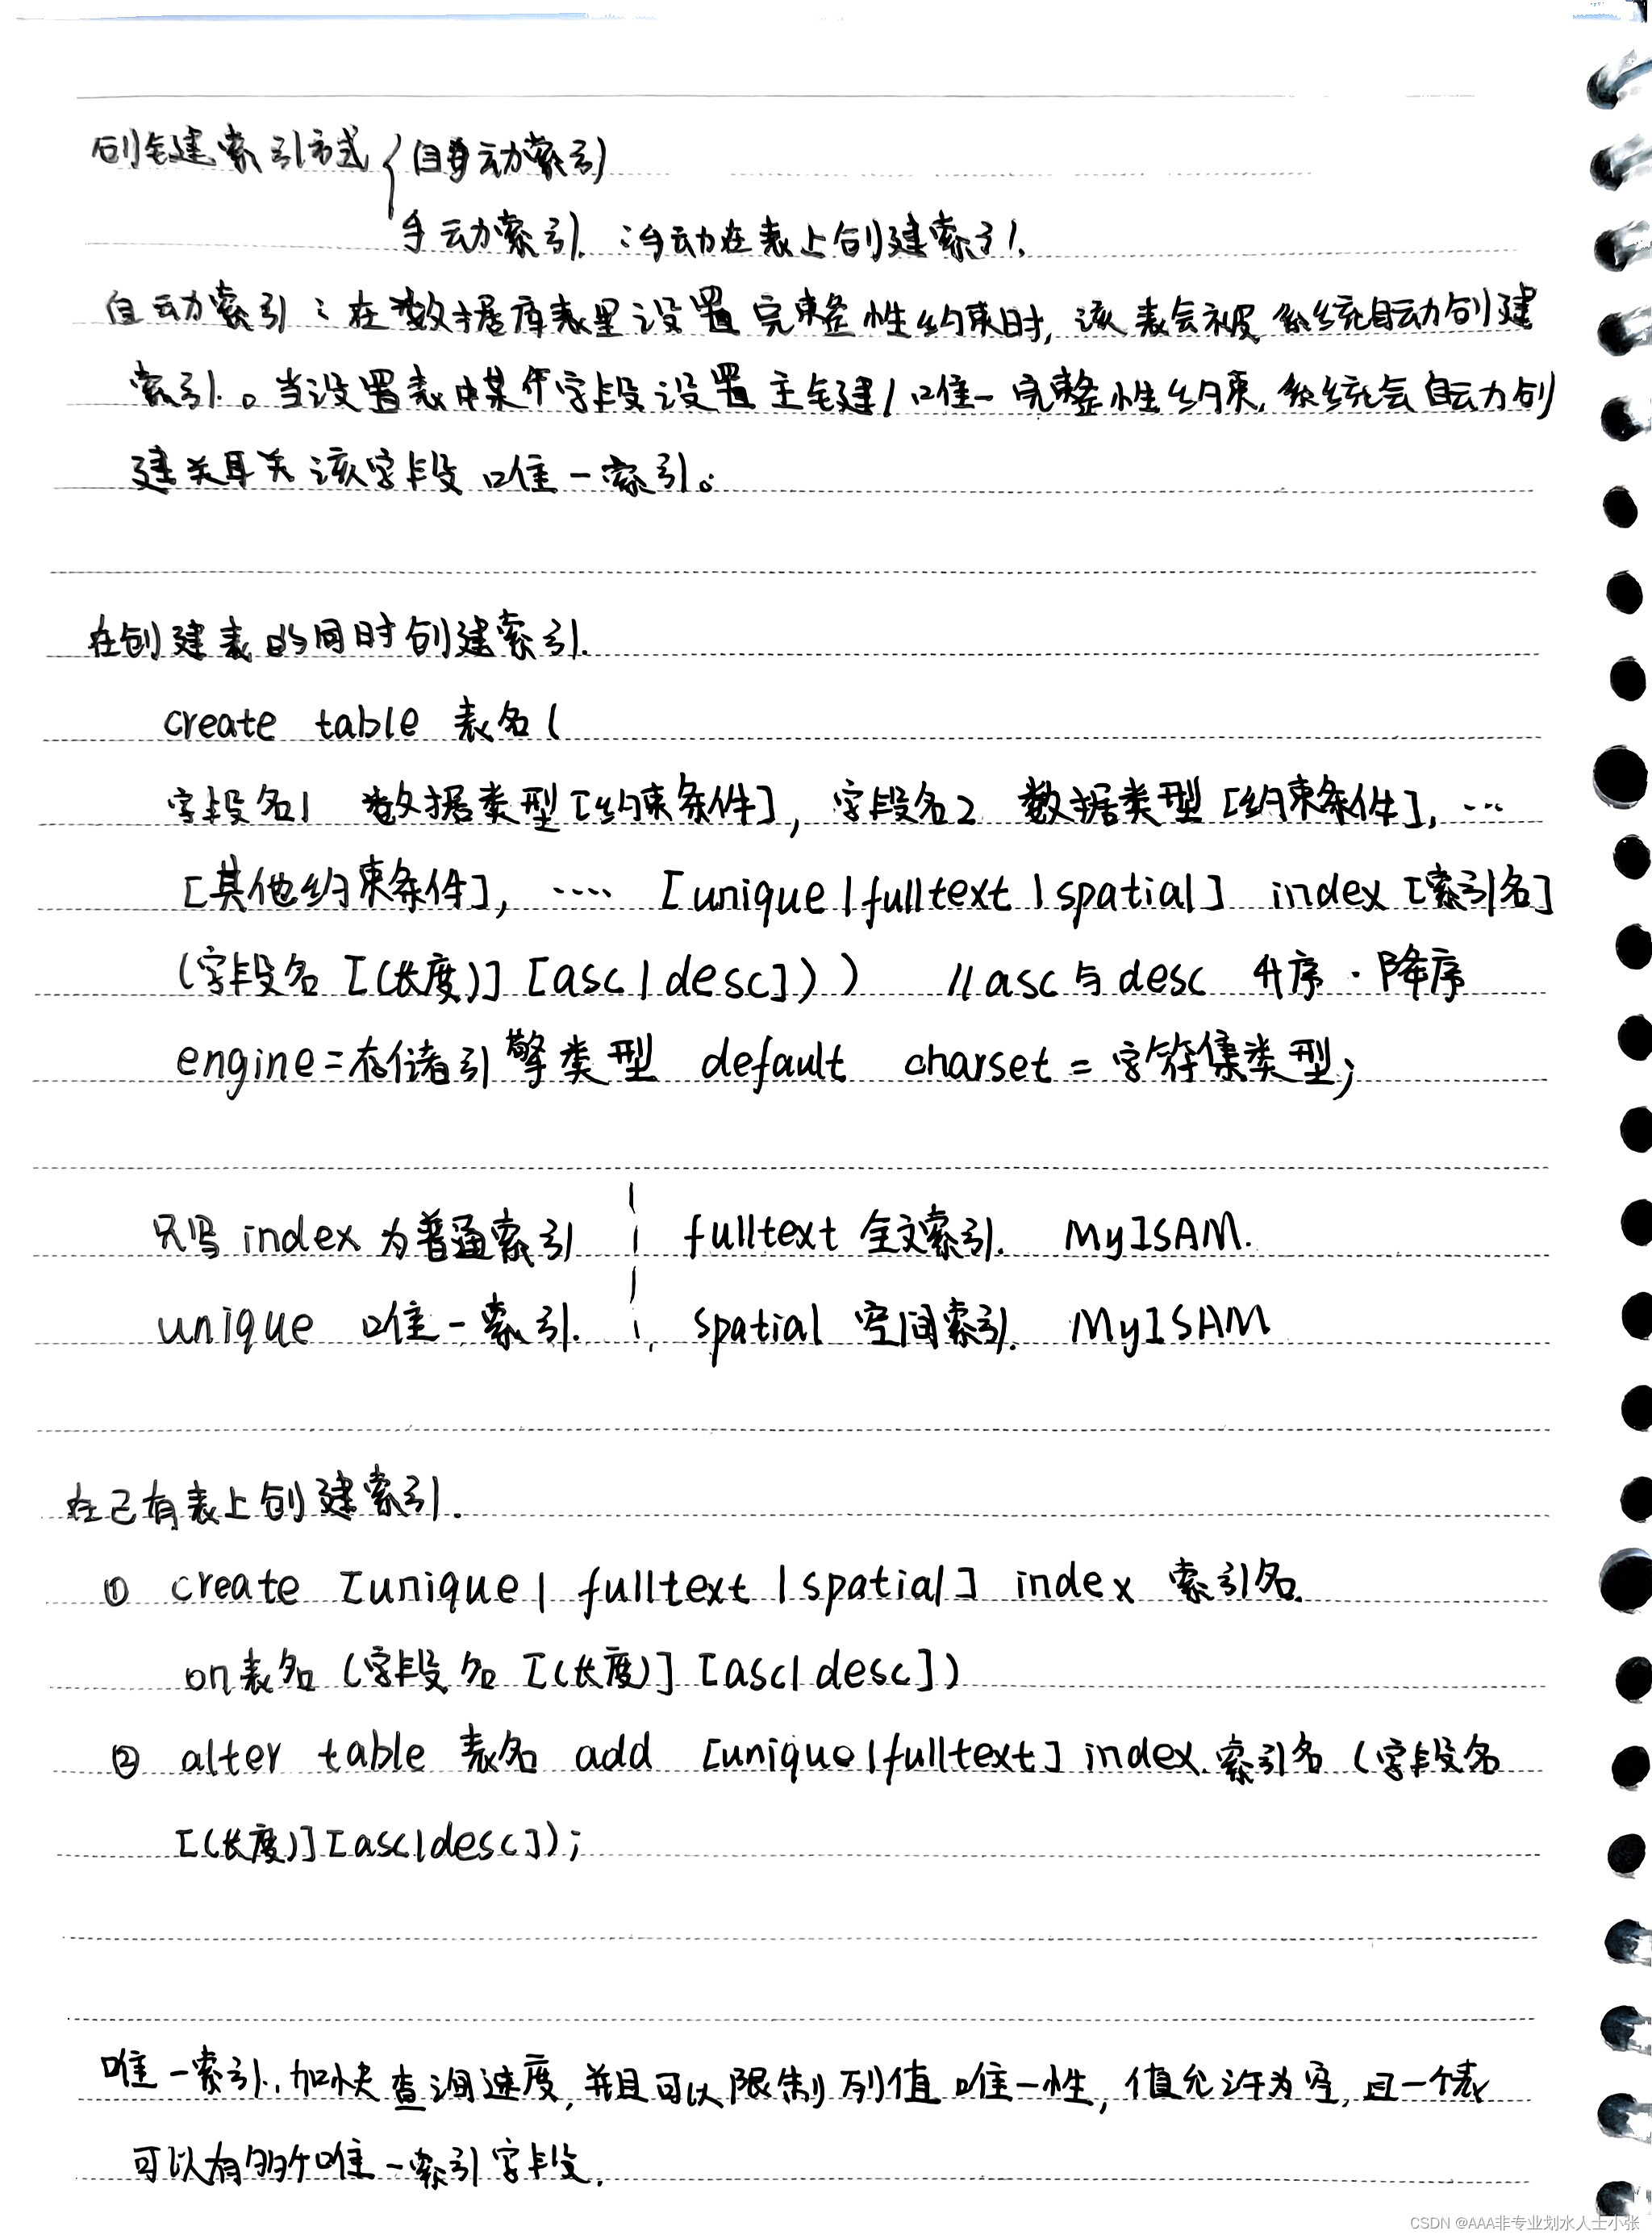 创建索引方式{自动索引
手动索引：手动在表上创建索引.
自动索引：在数据库表里设置完整性约束时，该表会被系统自动创建
索引。当设置表中某个字段设置主键/唯一完整性约束，系统会自动创
建关联该字段唯一索引。
在创建表的同时创建索引.
create table 表名(
字段名1 数据类型[约束条件], 字段名2 数据类型[约束条件], …
[其他约束条件], …… [unique|fulltext|spatial] index [索引名]
(字段名 [(长度)] [asc|desc])) //asc与desc 升序·降序
engine=存储引擎类型 default charset=字符集类型;
只写 index 为普通索引 ¦ fulltext 全文索引. MyISAM.
unique 唯一索引. ¦ spatial 空间索引. MyISAM
在已有表上创建索引.
① create [unique| fulltext |spatial] index 索引名.
on表名 (字段名 [(长度)] [asc|desc])
② alter table 表名 add [unique|fulltext] index.索引名 (字段名
[(长度)][asc|desc]);
唯一索引.加快查询速度,并且可以限制列值唯一性, 值允许为空, 且一个表
可以有多个唯一索引字段.
CSDN @AAA非专业划水人士小张